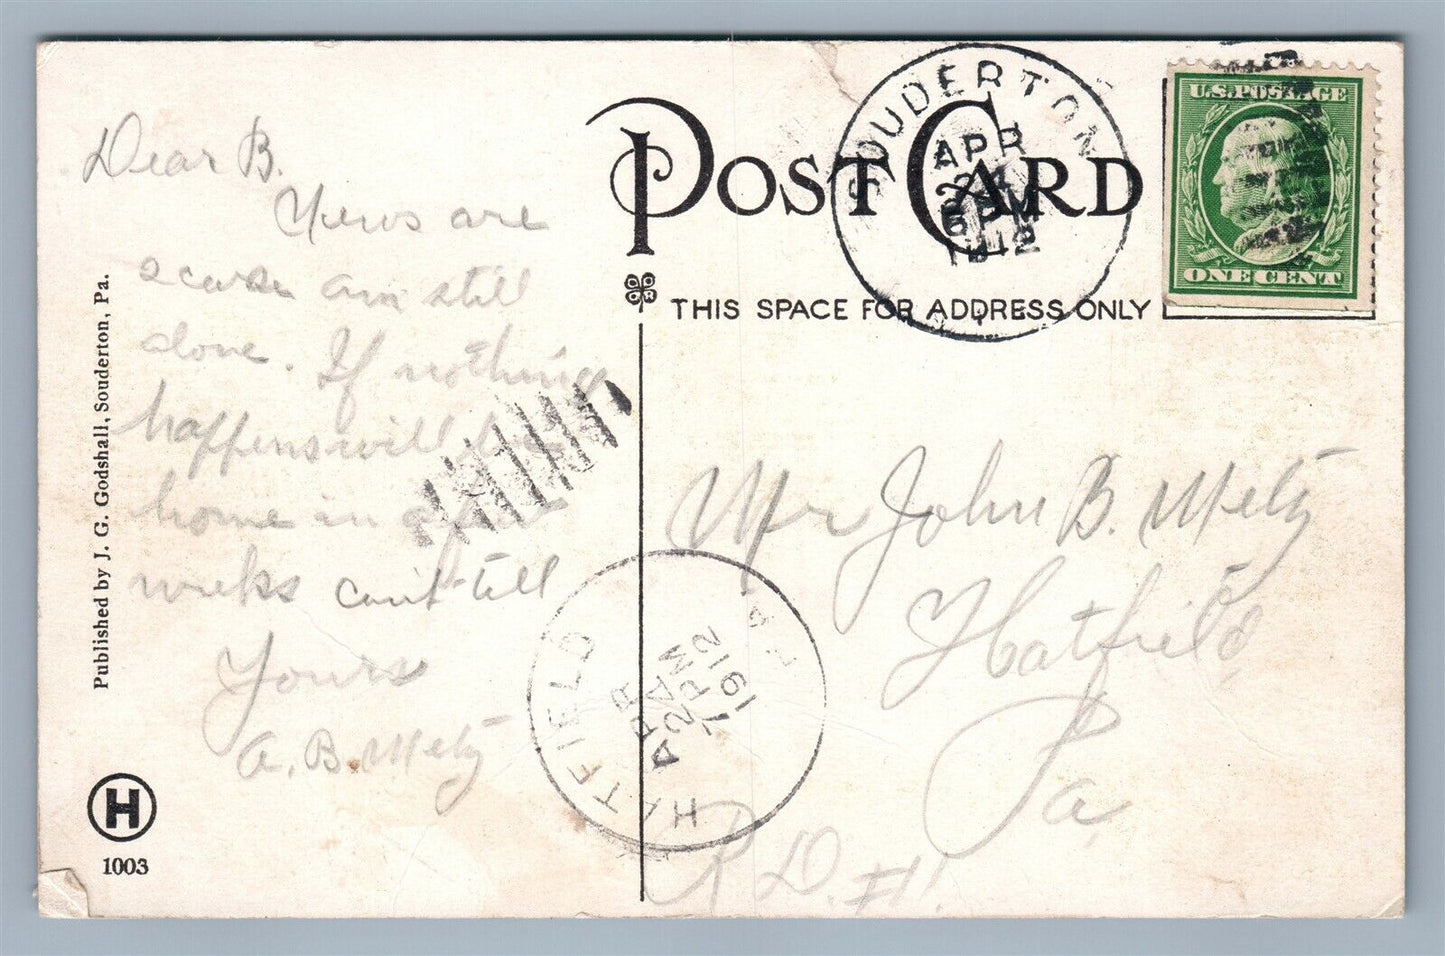 POST CARD
THIS SPACE FOR ADDRESS ONLY
SOUDERTON
APR
24
5 PM
1912
U.S. POSTAGE
ONE CENT
Dear B.
News are
scarse am still
alone. If nothing
happens will be
home in a
weeks can't tell
Yours
A. B. Metz
Mr John B. Metz
Hatfield
Pa
R D #1.
HATFIELD
APR
7 PM
1912
PA
Published by J. G. Godshall, Souderton, Pa.
H
1003